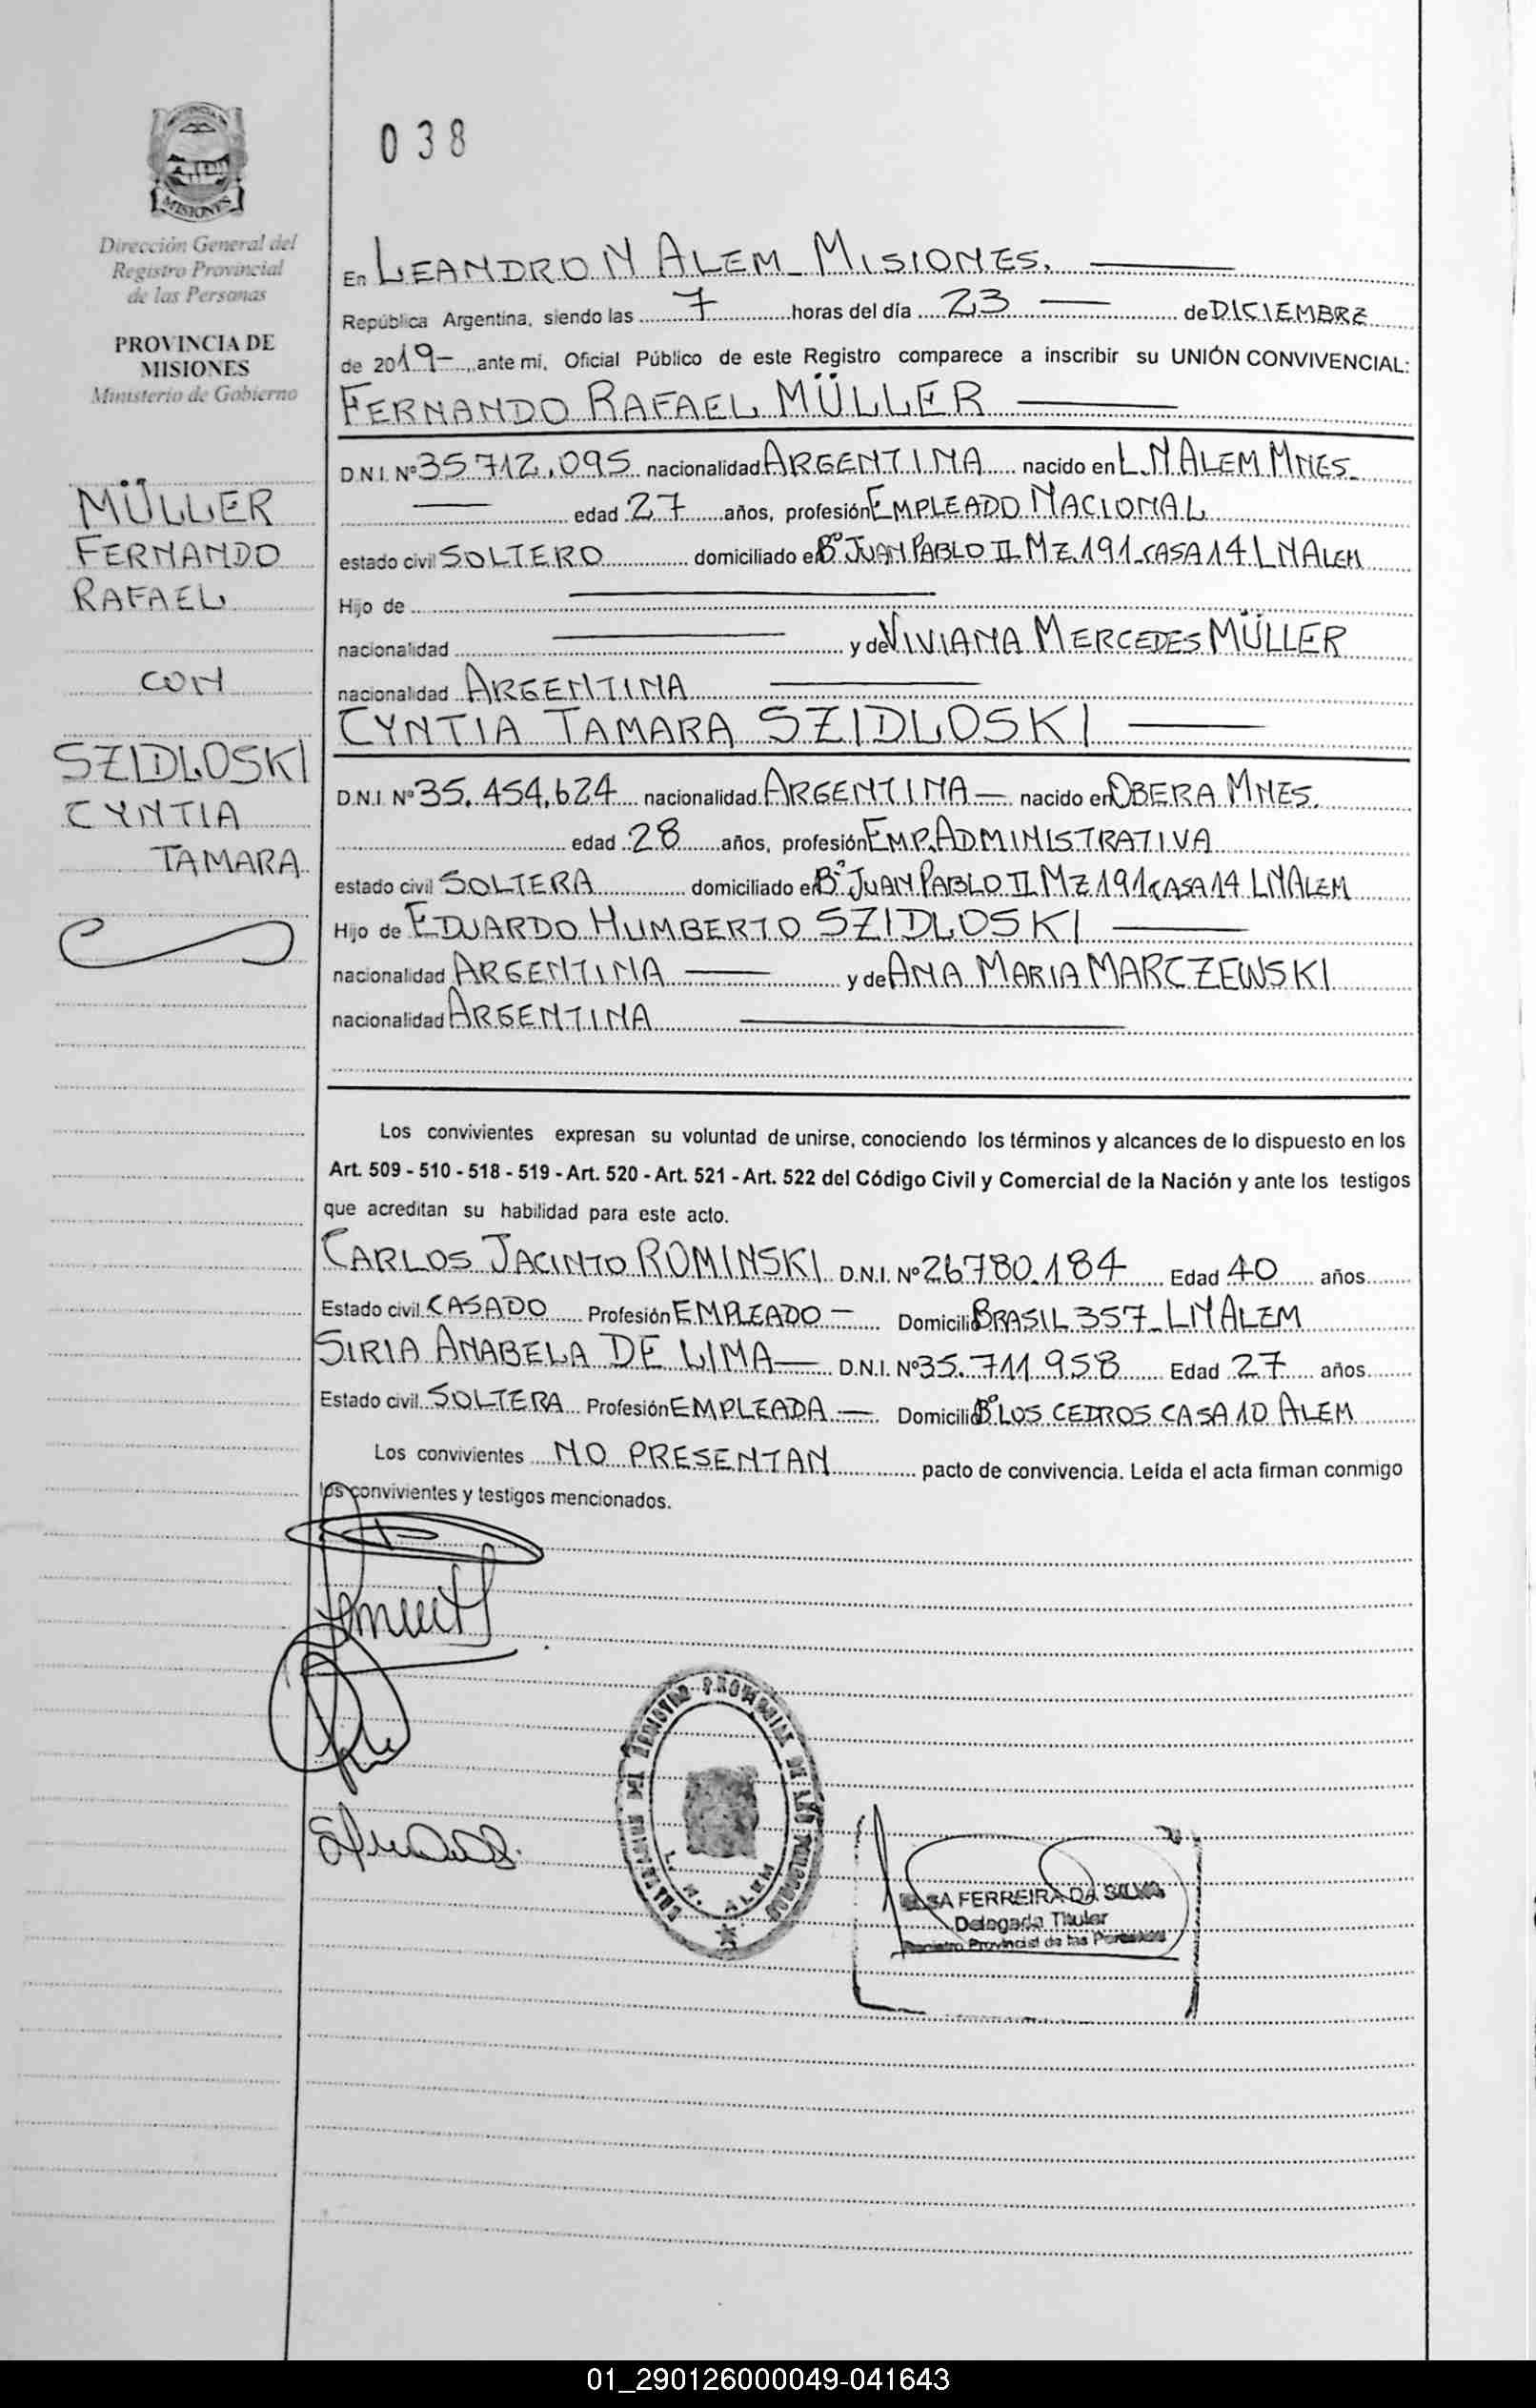 038
MISIONES
Dirección General del
Registro Provincial
de las Personas
PROVINCIA DE
MISIONES
Ministerio de Gobierno
MÜLLER
FERNANDO
RAFAEL
CON
SZIDLOSKI
CYNTIA
TAMARA
En LEANDRO N ALEM - MISIONES.
República Argentina, siendo las 7 horas del día 23 de DICIEMBRE
de 2019-, ante mi, Oficial Público de este Registro comparece a inscribir su UNIÓN CONVIVENCIAL:
FERNANDO RAFAEL MÜLLER
D.N.I. Nº 35712.095 nacionalidad ARGENTINA nacido en L.N ALEM MNES.
edad 27 años, profesión EMPLEADO NACIONAL
estado civil SOLTERO domiciliado en Bº JUAN PABLO II MZ 191 CASA 14 LN ALEM
Hijo de
nacionalidad y de VIVIANA MERCEDES MÜLLER
nacionalidad ARGENTINA
CYNTIA TAMARA SZIDLOSKI
D.N.I. Nº 35.454.624 nacionalidad ARGENTINA - nacido en OBERA MNES.
edad 28 años, profesión EMP. ADMINISTRATIVA
estado civil SOLTERA domiciliado en Bº JUAN PABLO II MZ 191 CASA 14 LN ALEM
Hijo de EDUARDO HUMBERTO SZIDLOSKI
nacionalidad ARGENTINA y de ANA MARIA MARCZEWSKI
nacionalidad ARGENTINA
Los convivientes expresan su voluntad de unirse, conociendo los términos y alcances de lo dispuesto en los
Art. 509 - 510 - 518 - 519 - Art. 520 - Art. 521 - Art. 522 del Código Civil y Comercial de la Nación y ante los testigos
que acreditan su habilidad para este acto.
CARLOS JACINTO ROMINSKI D.N.I. Nº 26780.184 Edad 40 años
Estado civil CASADO Profesión EMPLEADO - Domicilio BRASIL 357 - LN ALEM
SIRIA ANABELA DE LIMA - D.N.I. Nº 35.711.958 Edad 27 años
Estado civil SOLTERA Profesión EMPLEADA - Domicilio Bº LOS CEDROS CASA 10 ALEM
Los convivientes NO PRESENTAN pacto de convivencia. Leída el acta firman conmigo
los convivientes y testigos mencionados.
REGISTRO PROVINCIAL DE LAS PERSONAS
L. N. ALEM
FERREIRA DA SILVA
Delegada Titular
Registro Provincial de las Personas
01_290126000049-041643